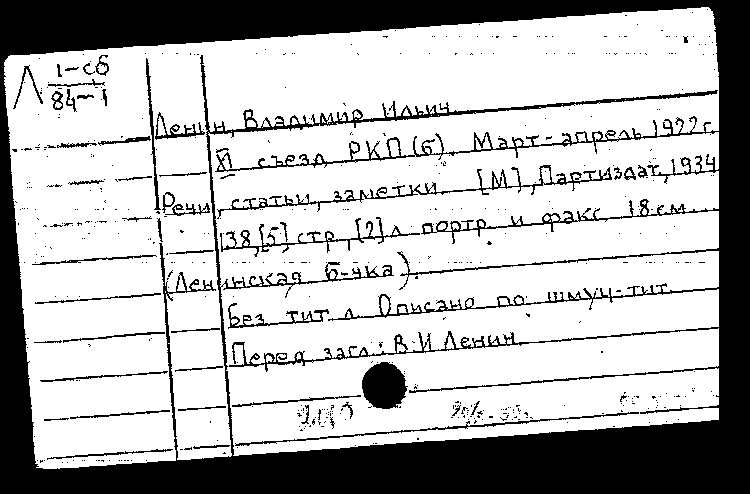 Л 1-сб
84-1
Ленин, Владимир Ильич
XI съезд РКП(б). Март-апрель 1922 г.
Речи, статьи, заметки. [М], Партиздат, 1934
138,[5] стр., [2] л портр. и факс. 18 см.
(Ленинская б-чка).
Без тит. л. Описано по шмуц-тит.
Перед загл.: В.И Ленин.